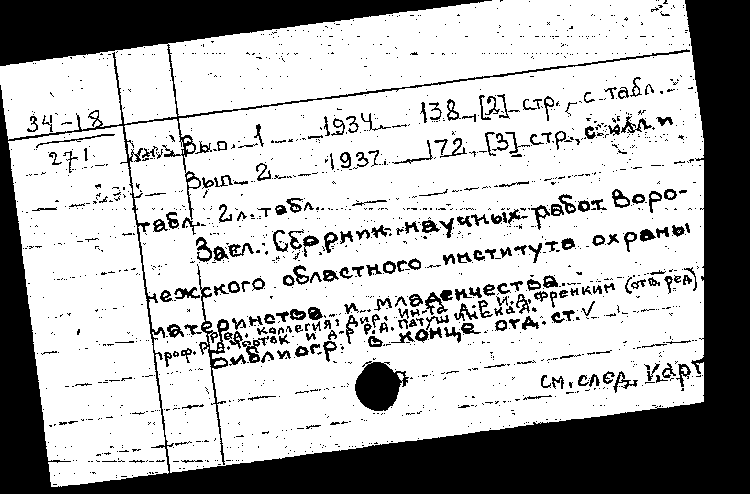 34-18
271
Вып. 1 1934. 138, [2] стр., с табл.
Вып. 2. 1937. 172, [3] стр., с илл. и
табл. 2 л. табл.
Загл.: Сборник научных работ Воро-
нежского областного института охраны
материнства и младенчества
Ред. коллегия: Дир. ин-та д-р И.Д. Френкин (отв. ред.),
проф. Р.Д. и д-р Р.Д.
Библиогр. в конце отд. ст. ✓
см. след. карт